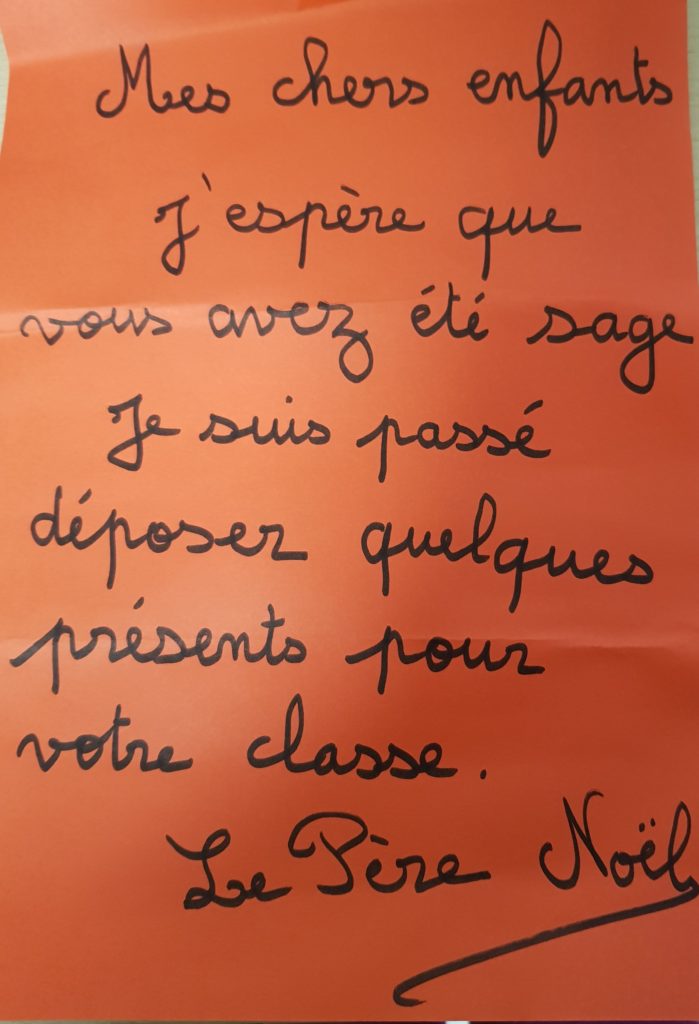 Mes chers enfants
J'espère que
vous avez été sage
Je suis passé
déposer quelques
présents pour
votre classe.
Le Père Noël